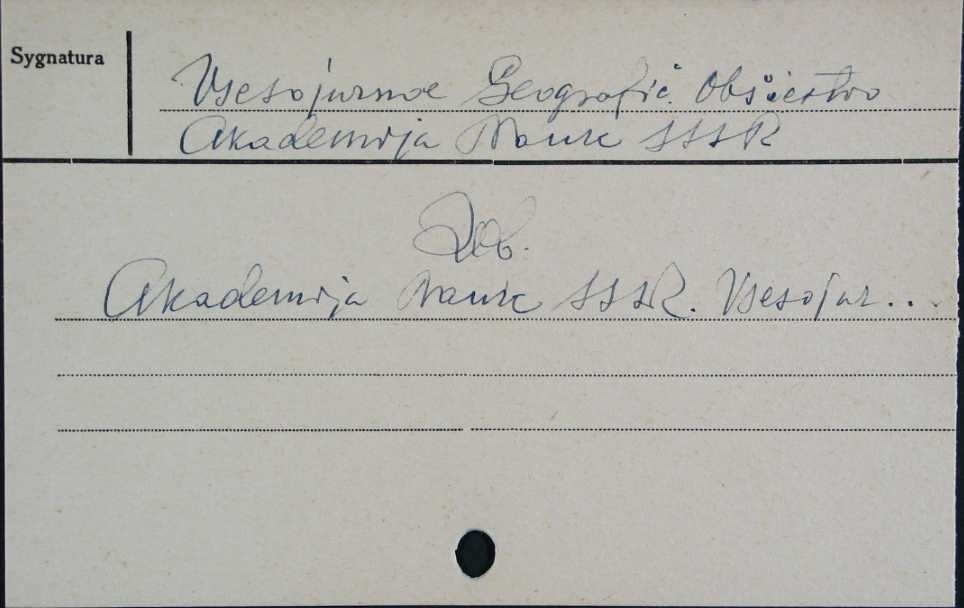 Sygnatura
Vsesojuznoe Geografič. Obščestvo
Akademija Nauk SSSR
Zob.
Akademija Nauk SSSR. Vsesojuz...